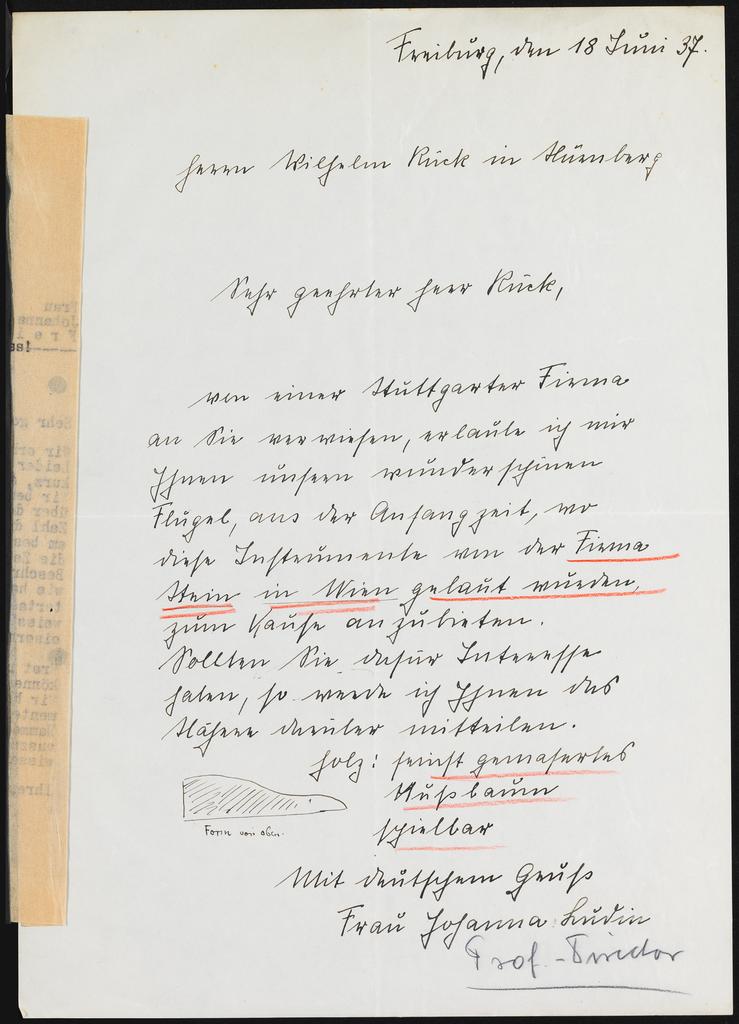 Freiburg, den 18 Juni 37.
Herrn Wilhelm Rück in Nürnberg
Sehr geehrter Herr Rück,
von einer Stuttgarter Firma
an Sie verwiesen, erlaube ich mir
Ihnen unsern wunderschönen
Flügel, aus der Anfangzeit, wo
diese Instrumente von der Firma
Stein in Wien gebaut wurden,
zum Kaufe anzubieten.
Sollten Sie dafür Interesse
haben, so werde ich Ihnen das
Nähere darüber mitteilen.
Holz: feinst gemasertes
Nußbaum
spielbar
Form von oben.
Mit deutschem Gruß
Frau Johanna Ludin
Prof. - Director
Frau
Johanna
Frei
Sehr
Leider
kurz,